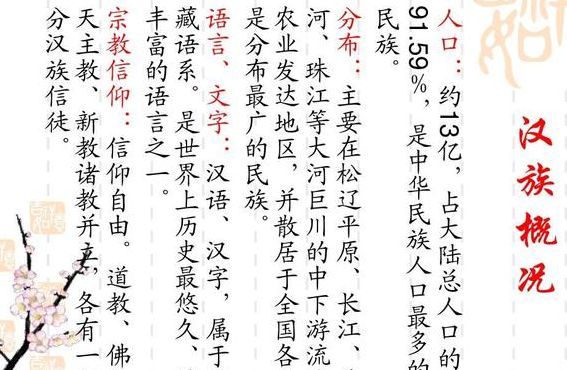 汉族概况
人口：约13亿，占大陆总人口的
91.59%，是中华民族人口最多的
民族。
分布：主要在松辽平原、长江、
河、珠江等大河巨川的中下游流
农业发达地区，并散居于全国各
是分布最广的民族。
语言、文字：汉语、汉字，属于
藏语系。是世界上历史最悠久、
丰富的语言之一。
宗教信仰：信仰自由。道教、佛
天主教、新教诸教并立，各有一
分汉族信徒。